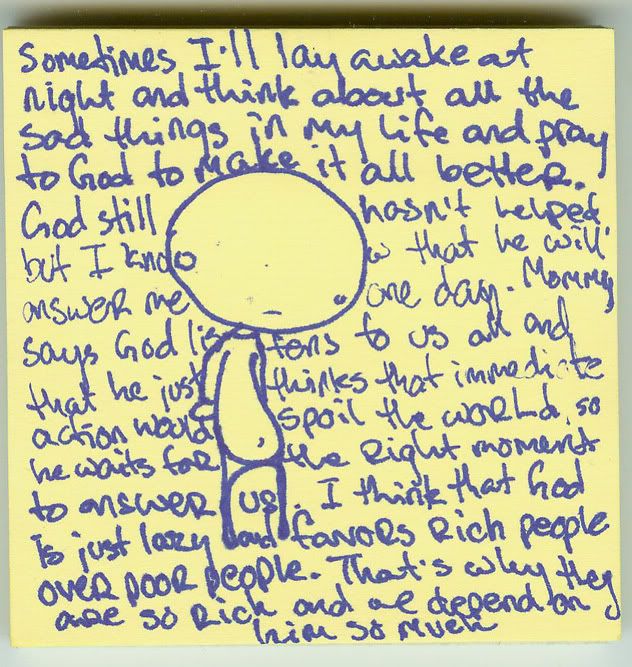 Sometimes I'll lay awake at
night and think about all the
sad things in my life and pray
to God to make it all better.
God still hasn't helped
but I know that he will
answer me one day. Mommy
says God listens to us all and
that he just thinks that immediate
action would spoil the world, so
he waits for the right moment
to answer us. I think that God
is just lazy and favors rich people
over poor people. That's why they
are so rich and we depend on
him so much